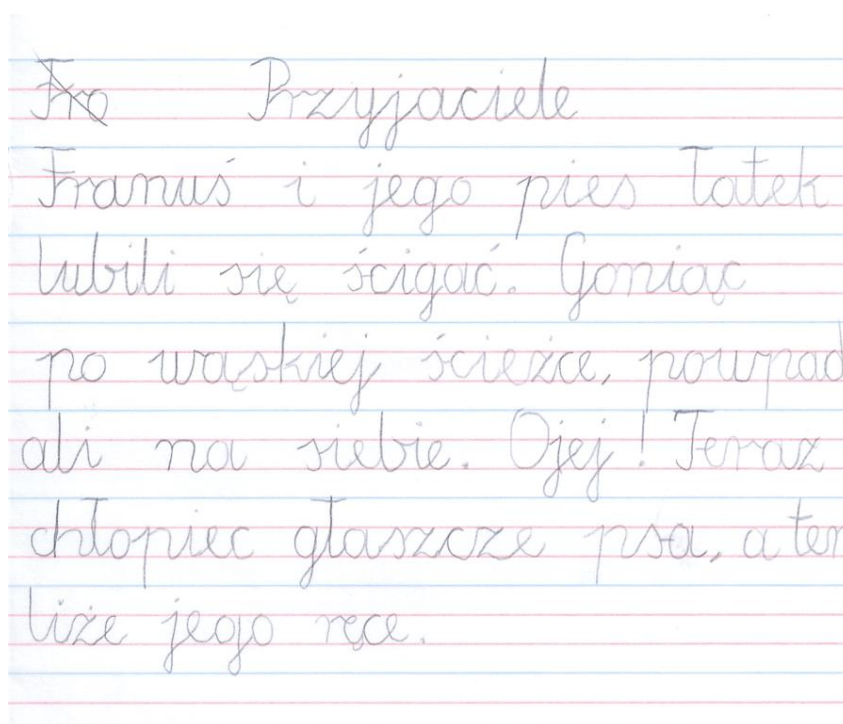 Fra Przyjaciele
Franuś i jego pies Łatek
lubili się ścigać. Goniąc
po wąskiej ścieżce, powpad
ali na siebie. Ojej! Teraz
chłopiec głaszcze psa, a ten
liże jego ręce.